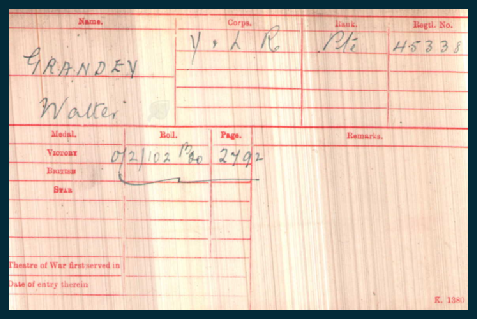 Name. Corps. Rank. Regtl. No.
GRANDEY Y & L R Pte 45338
Walter
Medal. Roll. Page. Remarks.
VICTORY 0/2/102 B20 2792
BRITISH
STAR
Theatre of War first served in
Date of entry therein
K. 1380